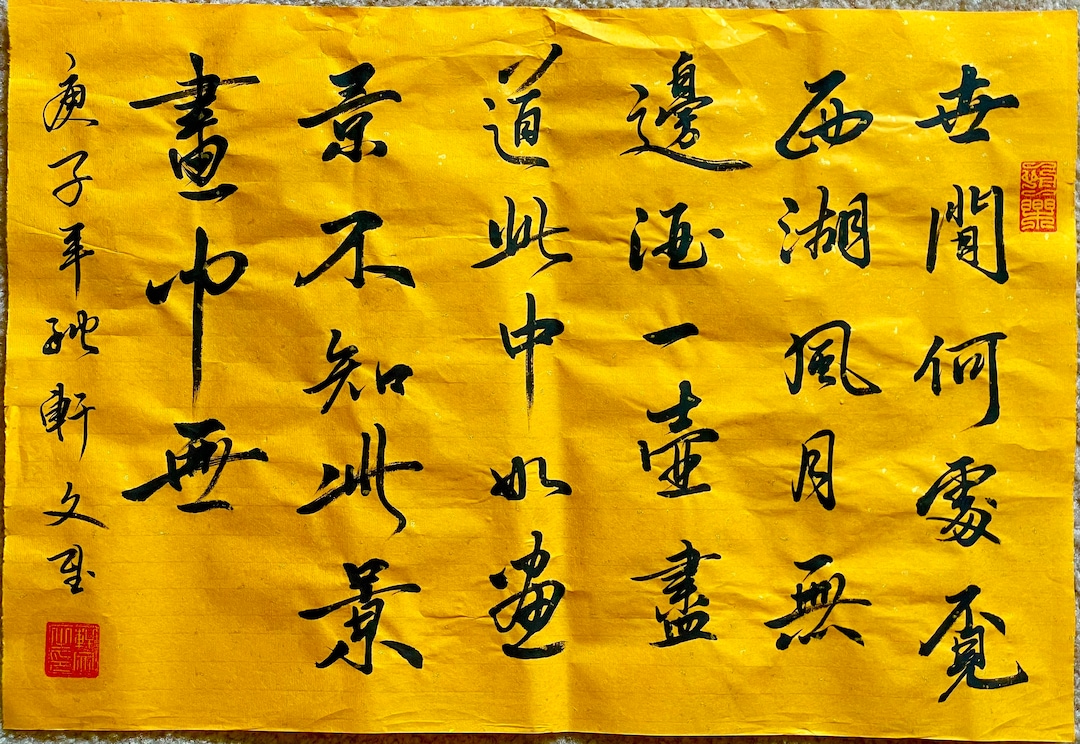 世間何處覔
西湖風月無
邊酒一壺盡
道此中如畫
景不知此景
畫中無
庚子年軒文